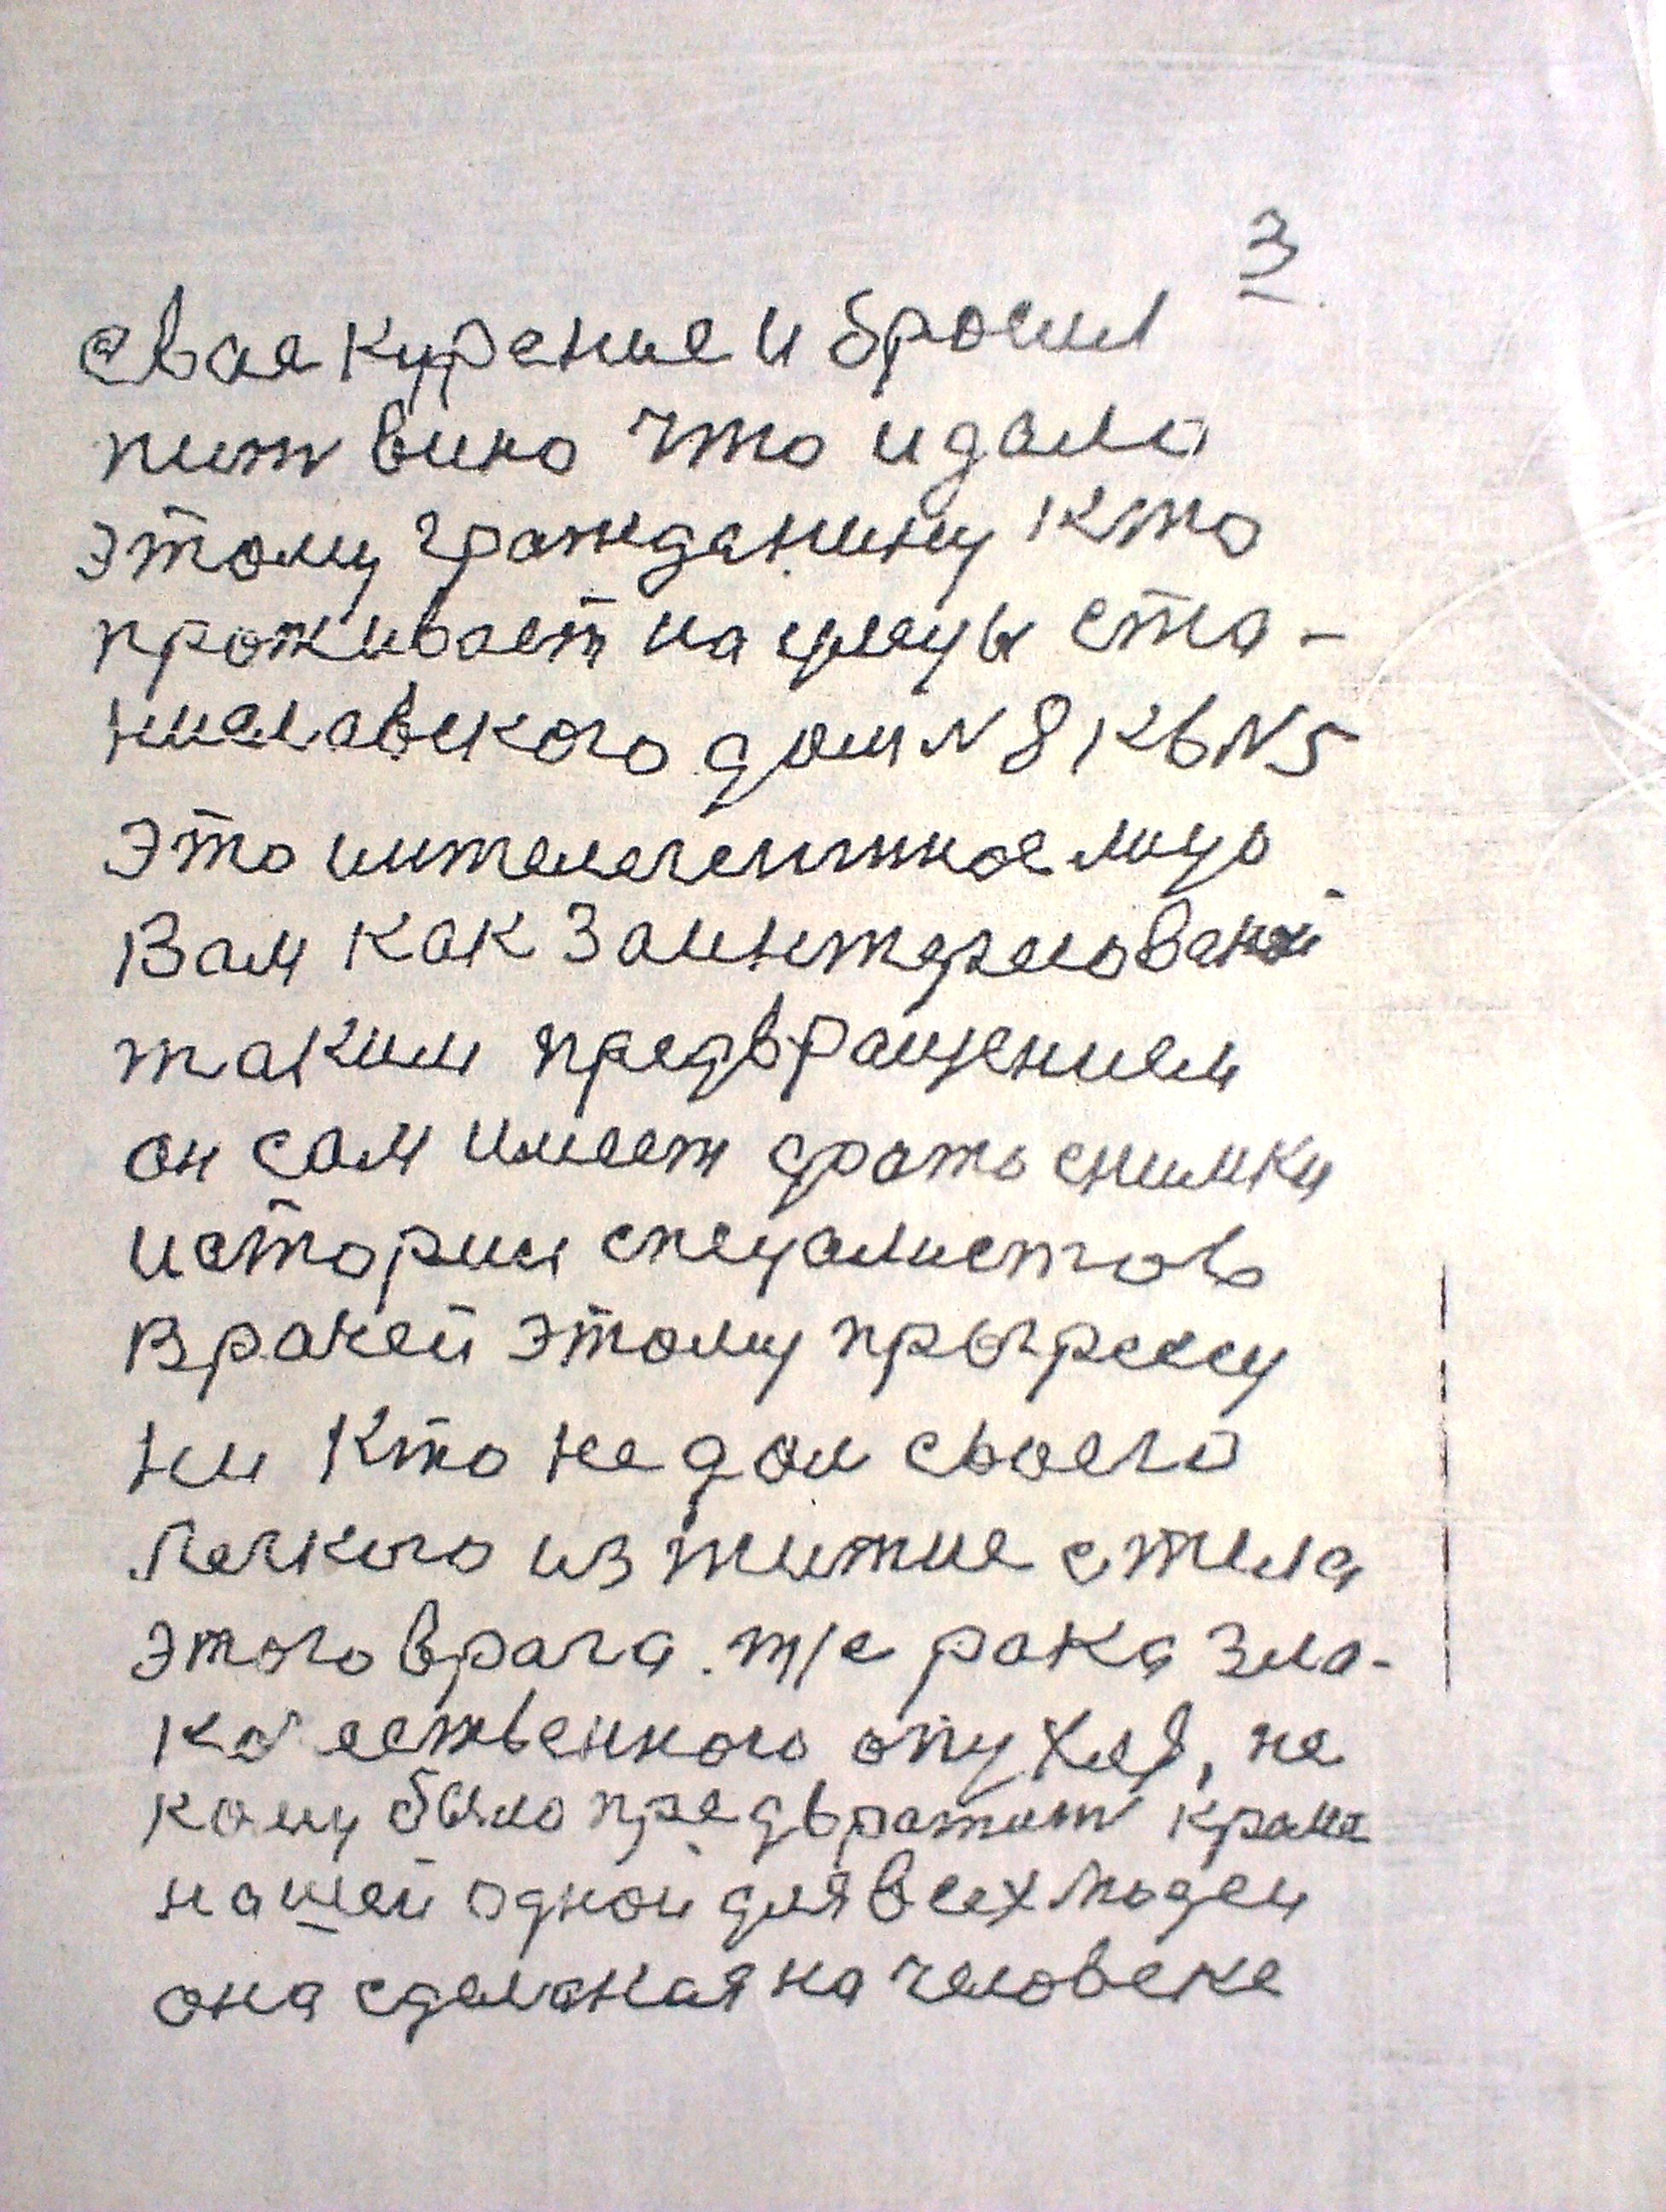 3
свае курение и бросил
пит вино что и дало
этому гражданину кто
проживает на улицы Ста-
ниславского дом N 8 кв N 5
Это интелегентное лицо
Вам как заинтересованой
таким предвращением
он сам имеет фото снимки
истории специалистов
врачей этому прогрессу
ни кто не дал своего
Легкого изжитие с тела
этого врага. т/е рака зло-
качественного опухля, не
кому было предвратит кроме
нашей одной для всех людей
она сделаная на человеке